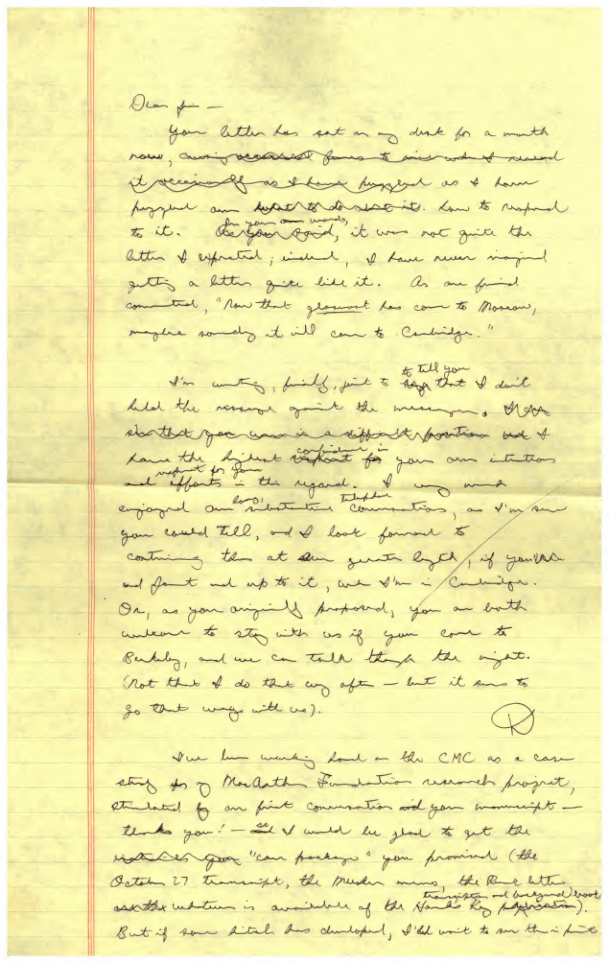 Dear Jim —
Your letter has sat on my desk for a month
now, as I have
puzzled over how to respond
to it. In your own words, it was not quite the
letter I expected; indeed, I have never imagined
getting a letter quite like it. As one friend
commented, "Now that glasnost has come to Moscow,
maybe someday it will come to Cambridge."
to tell you
I'm writing, finally, just to that I don't
hold the message against the messenger. I
confidence in
have the highest your own intentions
respect for your
and efforts in this regard. I very much
long, telephone
enjoyed our substantive conversations, as I'm sure
you could tell, and I look forward to
continuing them at greater length, if you
and Janet up to it, when I'm in Cambridge.
Or, as you originally proposed, you are both
welcome to stay with us if you come to
Berkeley, and we can talk through the night.
(Not that I do that very often — but it seems to
go that way with us).
I've been working hard on the CMC as a case
study for my MacArthur Foundation research project,
stimulated by our first conversation and your manuscript —
thanks you! — so I would be glad to get the
"care package" you promised (the
October 27 transcript, the memo, the letter
transcription and background book
whatever is available of the Hawk's Cay).
But if some hitch has developed, I'll wait to see them in print